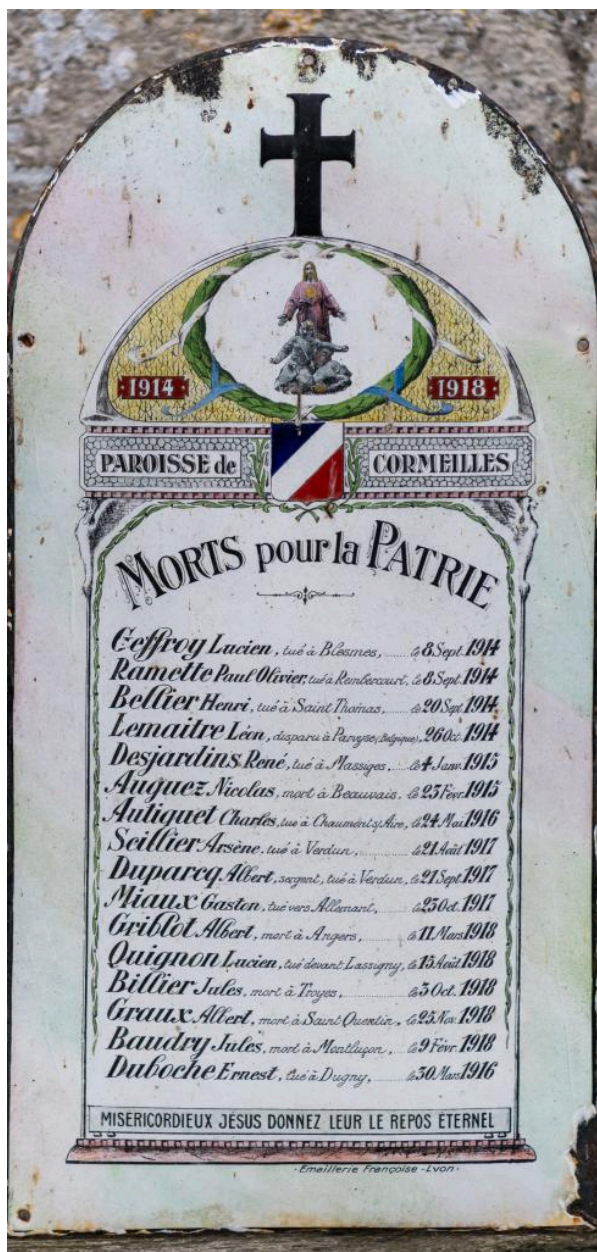 1914 1918
PAROISSE de CORMEILLES
MORTS pour la PATRIE
Geffroy Lucien, tué à Blesmes, ...... le 8 Sept. 1914
Ramette Paul Olivier, tué à Rembercourt, le 8 Sept. 1914
Bellier Henri, tué à Saint Thomas, ...... le 20 Sept. 1914
Lemaitre Léon, disparu à Parvyse (Belgique), 26 Oct. 1914
Desjardins René, tué à Massiges, ...... le 4 Janv. 1915
Auguez Nicolas, mort à Beauvais, le 23 Févr. 1915
Autiquet Charles, tué à Chaumont s/ Aire, le 24 Mai 1916
Scillier Arsène, tué à Verdun, ...... le 21 Août 1917
Duparcq Albert, sergent, tué à Verdun, le 21 Sept. 1917
Miaux Gaston, tué vers Allemant, ...... le 23 Oct. 1917
Griblot Albert, mort à Angers, ...... le 11 Mars 1918
Quignon Lucien, tué devant Lassigny, le 13 Août 1918
Billier Jules, mort à Troyes, ...... le 3 Oct. 1918
Graux Albert, mort à Saint Quentin, le 25 Nov. 1918
Baudry Jules, mort à Montluçon, ...... le 9 Févr. 1918
Duboche Ernest, tué à Dugny, ...... le 30 Mars 1916
MISERICORDIEUX JÉSUS DONNEZ LEUR LE REPOS ÉTERNEL
Emaillerie Françoise - Lyon